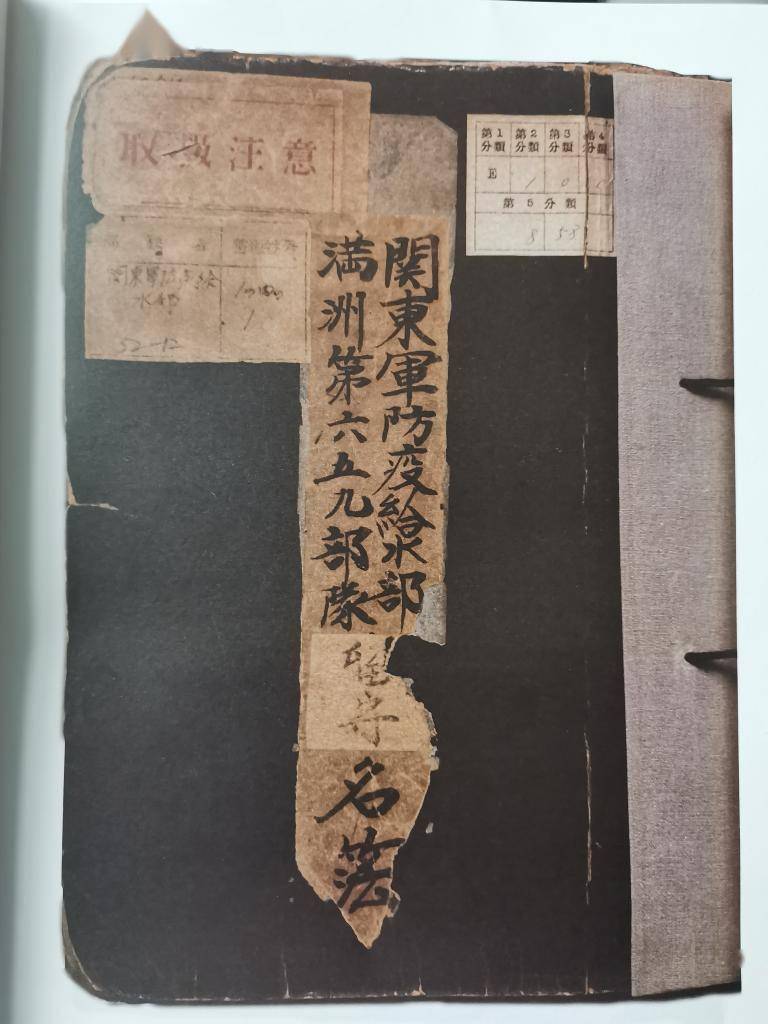 取扱注意
関東軍防疫給水部
1
52-12
関東軍防疫給水部
満洲第六五九部隊
留守
名簿
第1分類 第2分類 第3分類 第4分類
E 1 0
第5分類
8 58